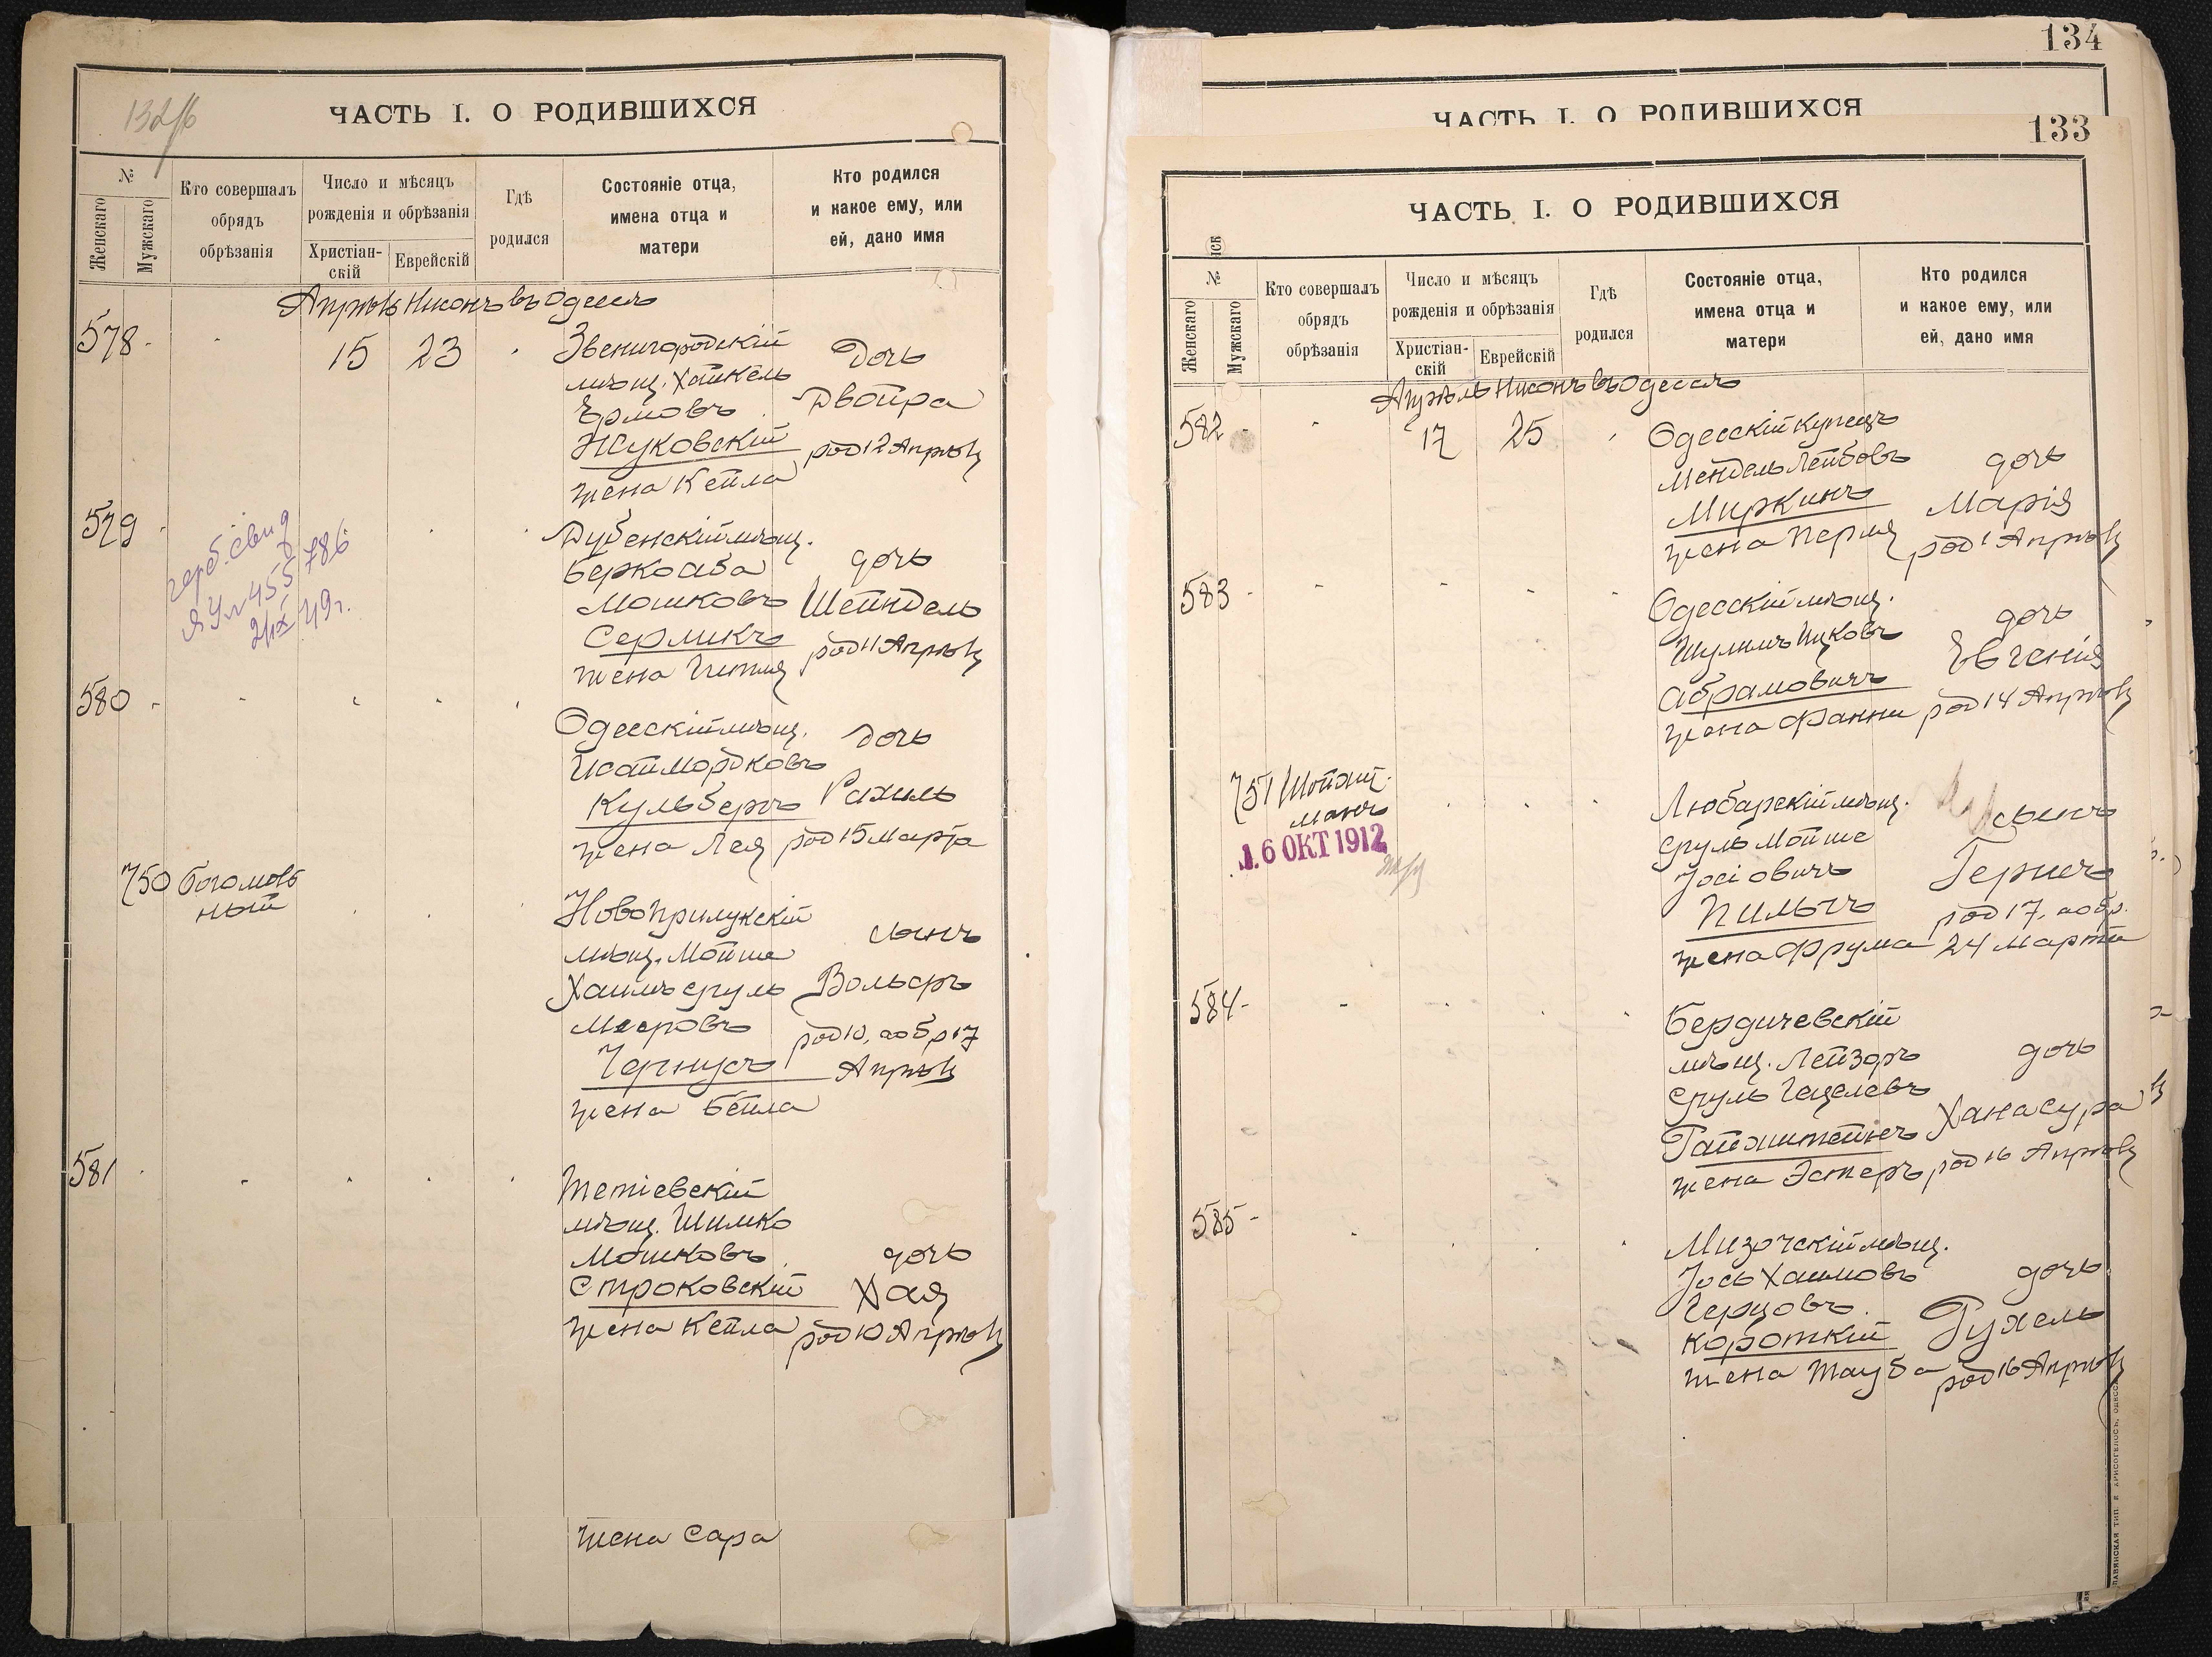 132/б
ЧАСТЬ I. О РОДИВШИХСЯ
№
Женскаго
Мужскаго
Кто совершалъ
обрядъ
обрѣзанія
Число и мѣсяцъ
рожденія и обрѣзанія
Христіан-
скій
Еврейскій
Гдѣ
родился
Состояніе отца,
имена отца и
матери
Кто родился
и какое ему, или
ей, дано имя
Апрѣль Нисонъ въ Одессѣ
578 -
15
23
Звенигородскій
мѣщ. Хайкель
Ермовъ
Жуковскій
жена Кейла
Дочь
Двойра
род 12 Апрѣля
579
герб. свид
ЯУ № 455786
2/IX 49 г.
Дубенскій мѣщ.
Беркоаба
Мошковъ
Серликъ
жена Гитля
дочь
Шейндель
род 11 Апрѣля
580 -
Одесскій мѣщ.
Исай Мордковъ
Кульбергъ
жена Лея
Дочь
Рахиль
род 15 Марта
750 Богомоль
ный
Новоприлукскій
мѣщ. Мойше
Хаимъ Сруль
Мееровъ
Чернусъ
жена Бейла
сынъ
Вольфъ
род 10, а обр 17
Апрѣля
581
Тетіевскій
мѣщ. Шимко
Мошковъ
Строковскій
жена Кейла
дочь
Хая
род 10 Апрѣля
жена Сара
134
ЧАСТЬ I. О РОДИВШИХСЯ
133
ЧАСТЬ I. О РОДИВШИХСЯ
№
Женскаго
Мужскаго
Кто совершалъ
обрядъ
обрѣзанія
Число и мѣсяцъ
рожденія и обрѣзанія
Христіан-
скій
Еврейскій
Гдѣ
родился
Состояніе отца,
имена отца и
матери
Кто родился
и какое ему, или
ей, дано имя
Апрѣль Нисонъ въ Одессѣ
582 -
17
25
Одесскій купецъ
Мендель Лейбовъ
Миркинъ
жена Перля
дочь
Марія
род 1 Апрѣля
583 -
Одесскій мѣщ.
Шулимъ Ицковъ
Абрамовичъ
жена Фанни
дочь
Евгенія
род 14 Апрѣля
751 Шойхит
манъ
16 ОКТ 1912
Любарскій мѣщ.
Сруль Мойше
Іосіовичъ
Пильчъ
жена Фрума
сынъ
Гершъ
род 17, а обр.
24 Марта
584 -
Бердичевскій
мѣщ. Лейзоръ
Сруль Гецелевъ
Гайхштейнъ
жена Эстеръ
дочь
Хана Сура
род 16 Апрѣля
585 -
Мизочскій мѣщ.
Іось Хаимовъ
Герцовъ
Короткій
жена Тауба
дочь
Рухель
род 16 Апрѣля